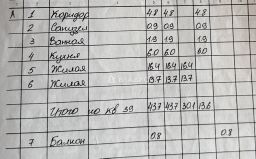 А 1 Коридор 4.8 4.8 4.8
2 Санузел 0.9 0.9 0.9
3 Ванная 1.9 1.9 1.9
4 Кухня 6.0 6.0 6.0
5 Жилая 16.4 16.4 16.4
6 Жилая 13.7 13.7 13.7
Итого по кв 39 43.7 43.7 30.1 13.6
7 Балкон 0.8 0.8